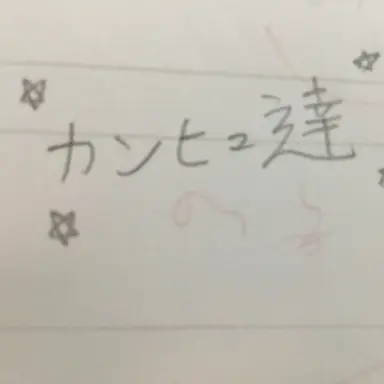 カンヒュ達